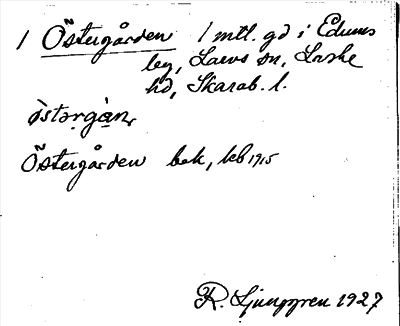 1 Östergården 1 mtl. gd i Edums
by, Larvs sn, Laske
hd, Skarab. l.
östərgàn,
Östergården bek, kb 1915
R. Ljunggren 1927